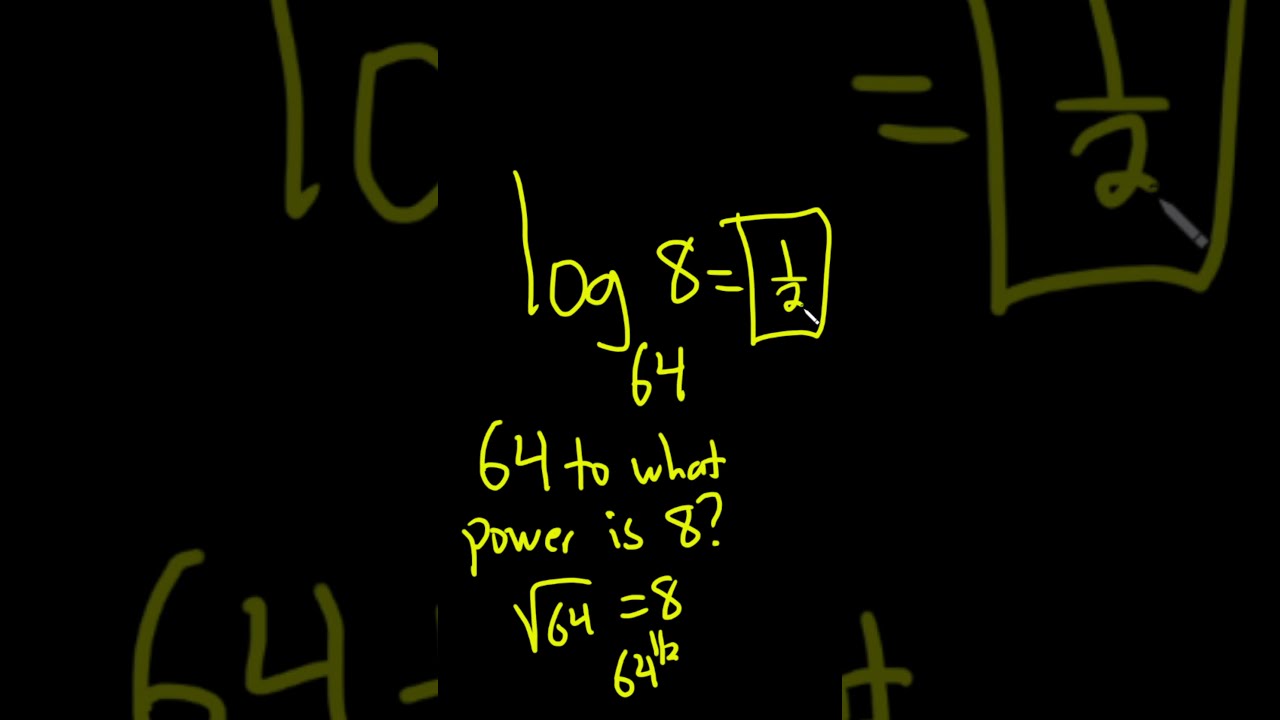 log₆₄ 8 = 1/2
64 to what
power is 8?
√64 = 8
64^1/2